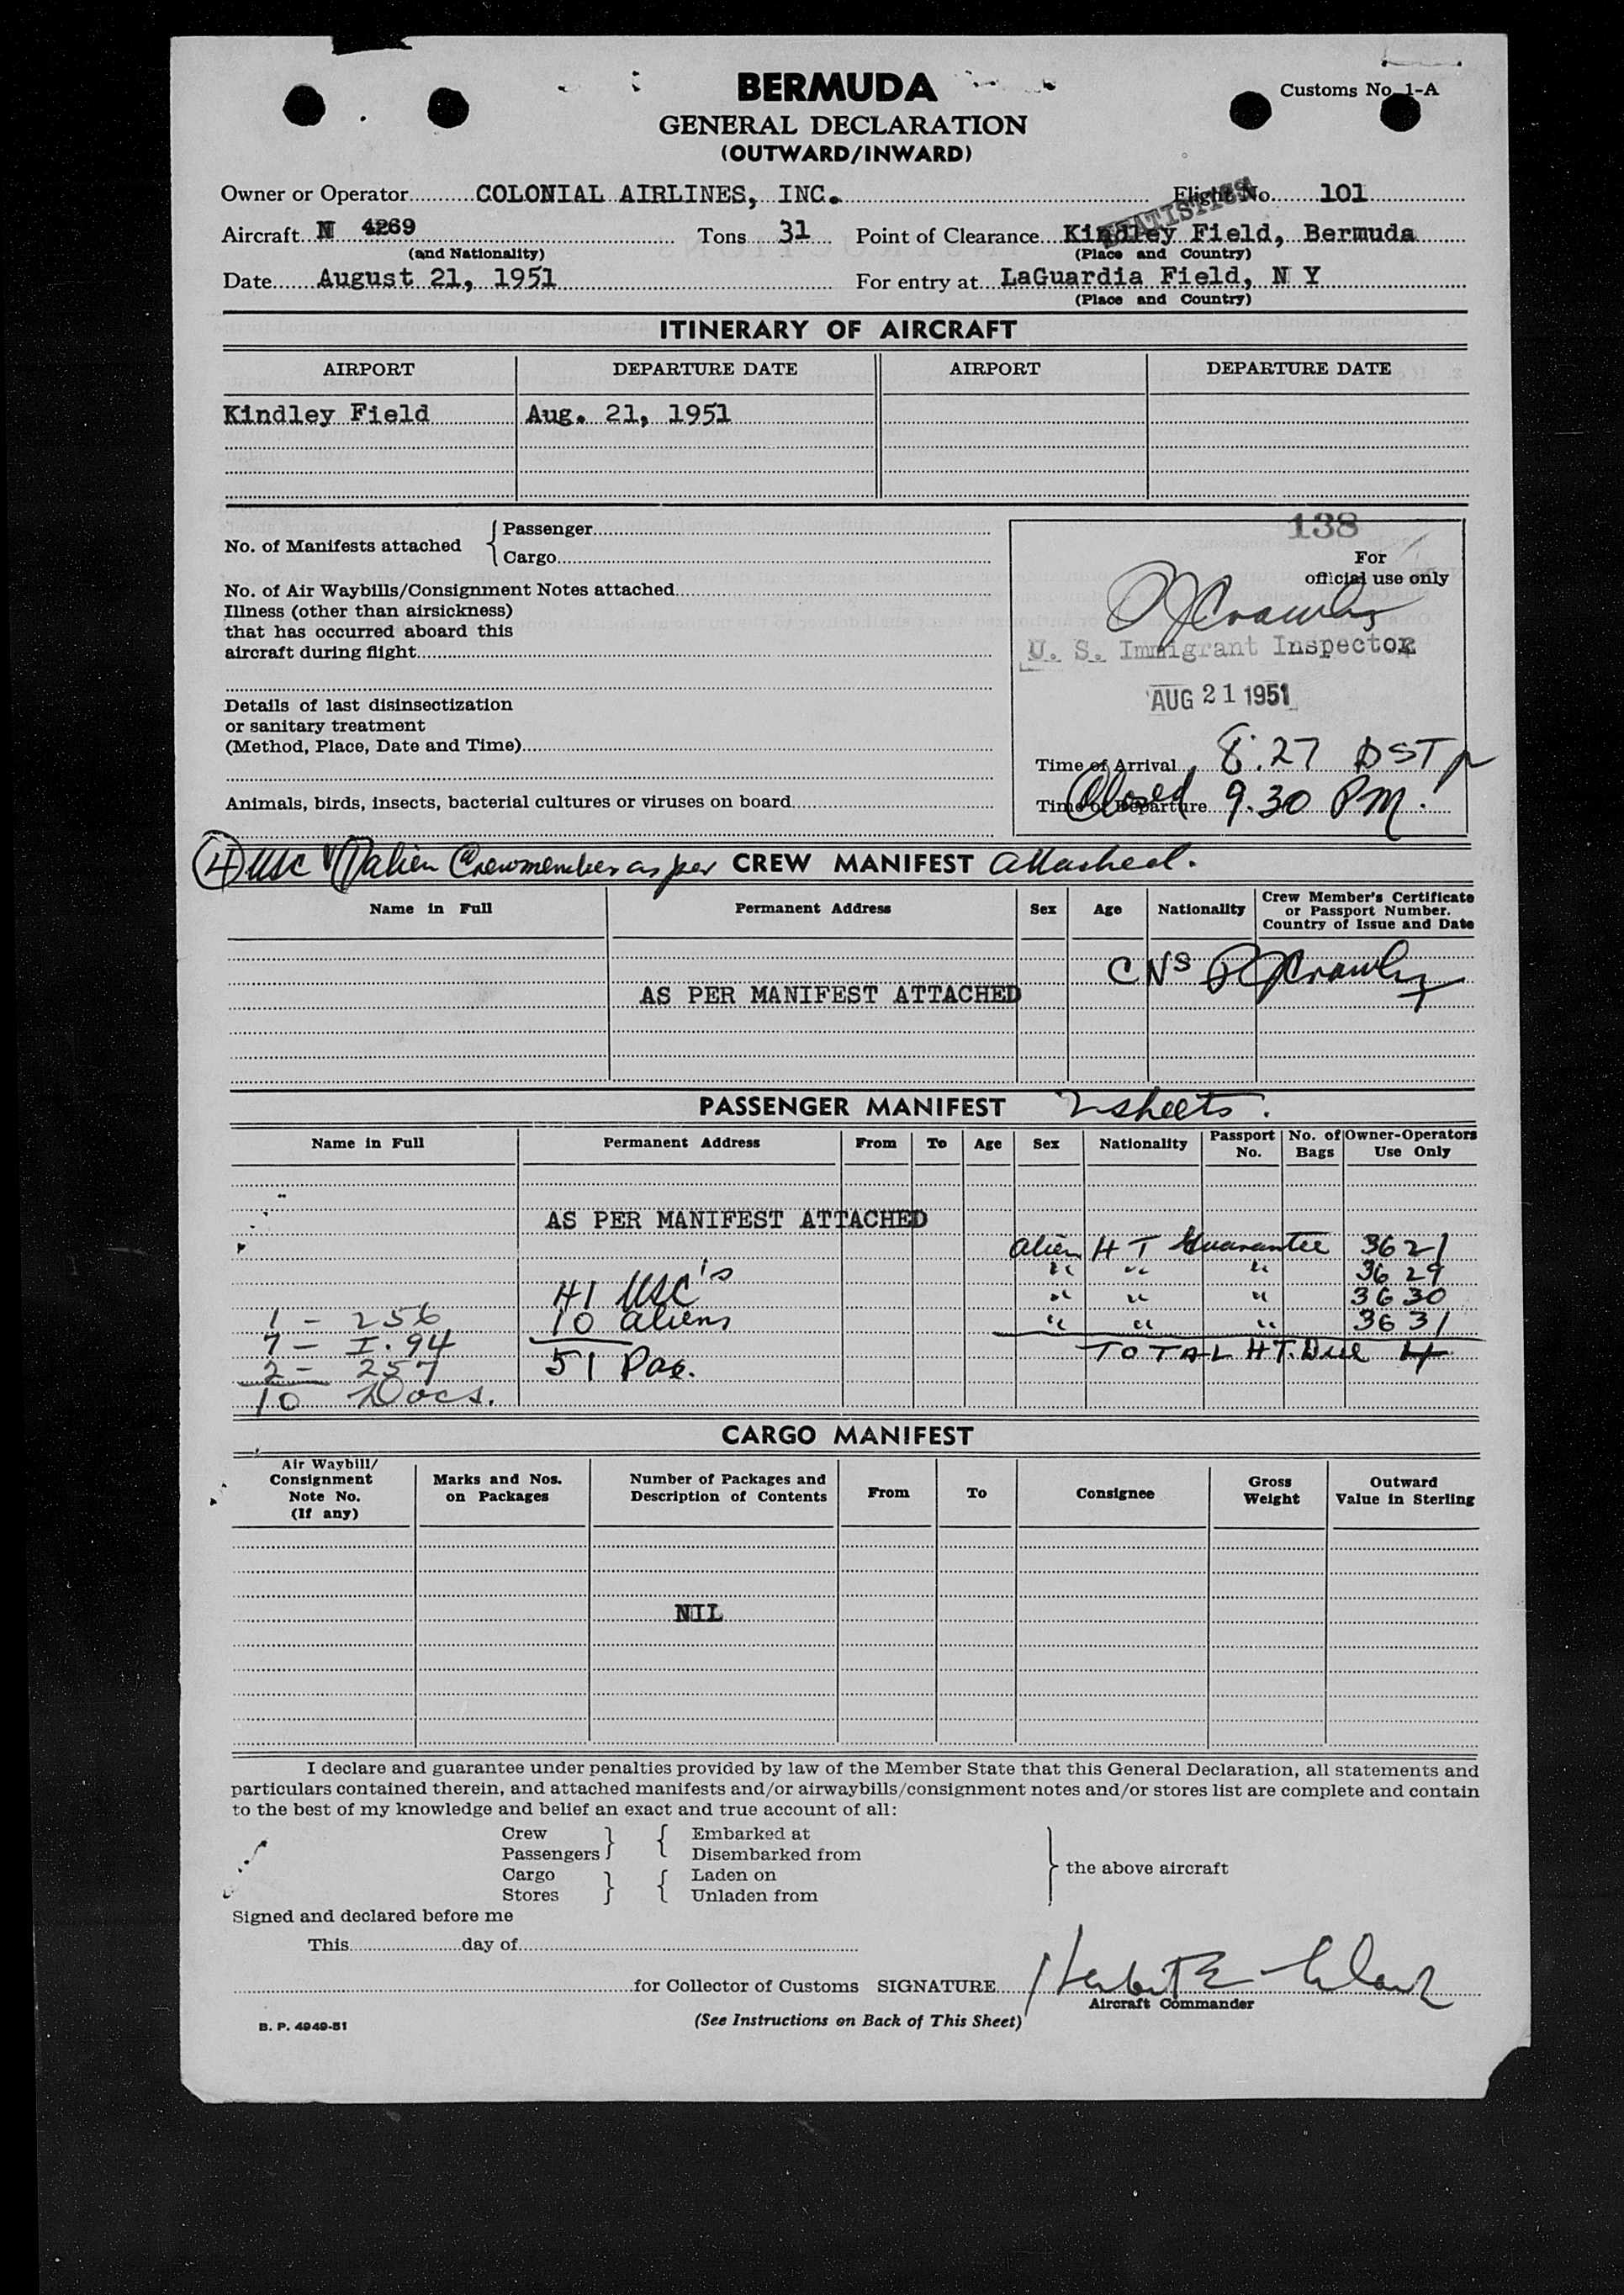 BERMUDA
Customs No. 1-A
GENERAL DECLARATION
(OUTWARD/INWARD)
Owner or Operator COLONIAL AIRLINES, INC. Flight No. 101
STATISTICS
Aircraft N 4269 Tons 31 Point of Clearance Kindley Field, Bermuda
(and Nationality) (Place and Country)
Date August 21, 1951 For entry at LaGuardia Field, N Y
(Place and Country)
ITINERARY OF AIRCRAFT
AIRPORT DEPARTURE DATE AIRPORT DEPARTURE DATE
Kindley Field Aug. 21, 1951
138
No. of Manifests attached { Passenger
Cargo
For
official use only
No. of Air Waybills/Consignment Notes attached
Illness (other than airsickness)
that has occurred aboard this
aircraft during flight
U. S. Immigrant Inspector
Details of last disinsectization
or sanitary treatment
(Method, Place, Date and Time)
AUG 21 1951
Time of Arrival 8:27 DST p
Animals, birds, insects, bacterial cultures or viruses on board
Time of Departure Closed 9.30 PM.
(4) USC alien Crewmember as per CREW MANIFEST attached.
Name in Full Permanent Address Sex Age Nationality Crew Member's Certificate
or Passport Number.
Country of Issue and Date
CNS RJCrawley
AS PER MANIFEST ATTACHED
PASSENGER MANIFEST 2 sheets.
Name in Full Permanent Address From To Age Sex Nationality Passport No. No. of Bags Owner-Operators Use Only
AS PER MANIFEST ATTACHED
Alien H T Guarantee 3621
" " " 3629
41 USC's " " " 3630
1 - 256 10 aliens " " " 3631
7 - I.94 TOTAL HT. Due 4
2 - 257 51 Pax.
10 Docs.
CARGO MANIFEST
Air Waybill/
Consignment
Note No.
(If any)
Marks and Nos.
on Packages
Number of Packages and
Description of Contents
From To Consignee Gross
Weight
Outward
Value in Sterling
NIL
I declare and guarantee under penalties provided by law of the Member State that this General Declaration, all statements and
particulars contained therein, and attached manifests and/or airwaybills/consignment notes and/or stores list are complete and contain
to the best of my knowledge and belief an exact and true account of all:
Crew } { Embarked at
Passengers Disembarked from
Cargo } { Laden on
Stores Unladen from
} the above aircraft
Signed and declared before me
This day of
for Collector of Customs SIGNATURE Herbert E
Aircraft Commander
B. P. 4949-51
(See Instructions on Back of This Sheet)